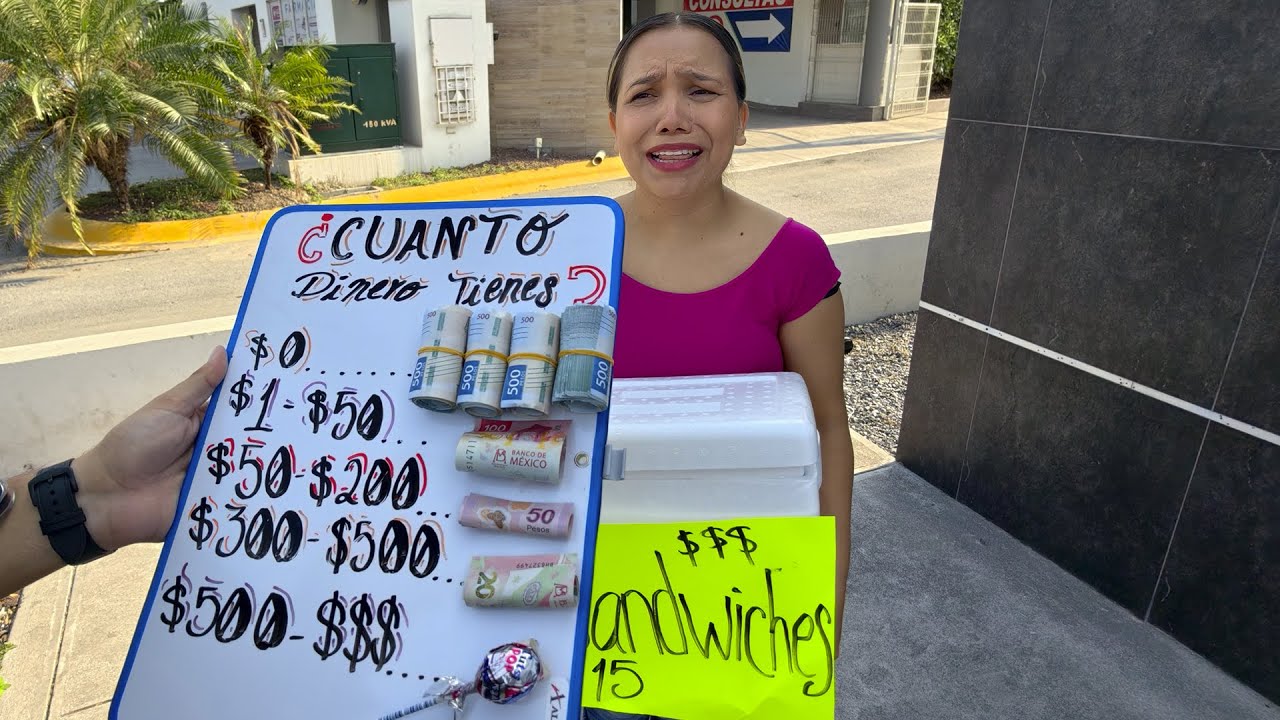 CONSULTAS
150 KVA
¿CUANTO
Dinero Tienes?
$0
$1-$50
$50-$200
$300-$500
$500-$$$
500 500 500
500 500 500 500
100
BANCO DE
MÉXICO
50
Pesos
20
POP
$$$
andwiches
15